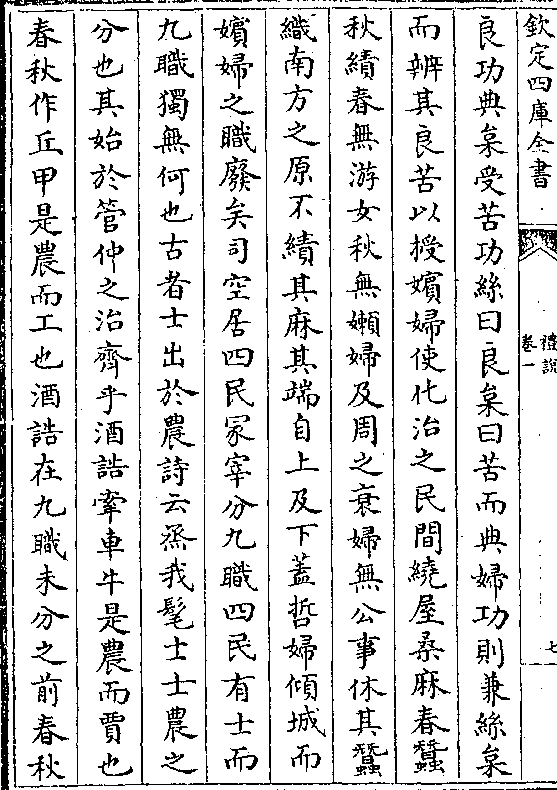 欽定四庫全書
禮說
卷一
七
良功典枲受苦功絲曰良枲曰苦而典婦功則兼絲枲
而辨其良苦以授嬪婦使化治之民間繞屋桑麻春蠶
秋績春無游女秋無嬾婦及周之衰婦無公事休其蠶
織南方之原不績其麻其端自上及下蓋哲婦傾城而
嬪婦之職廢矣司空居四民冢宰分九職四民有士而
九職獨無何也古者士出於農詩云烝我髦士士農之
分也其始於管仲之治齊乎酒誥牽車牛是農而賈也
春秋作丘甲是農而工也酒誥在九職未分之前春秋